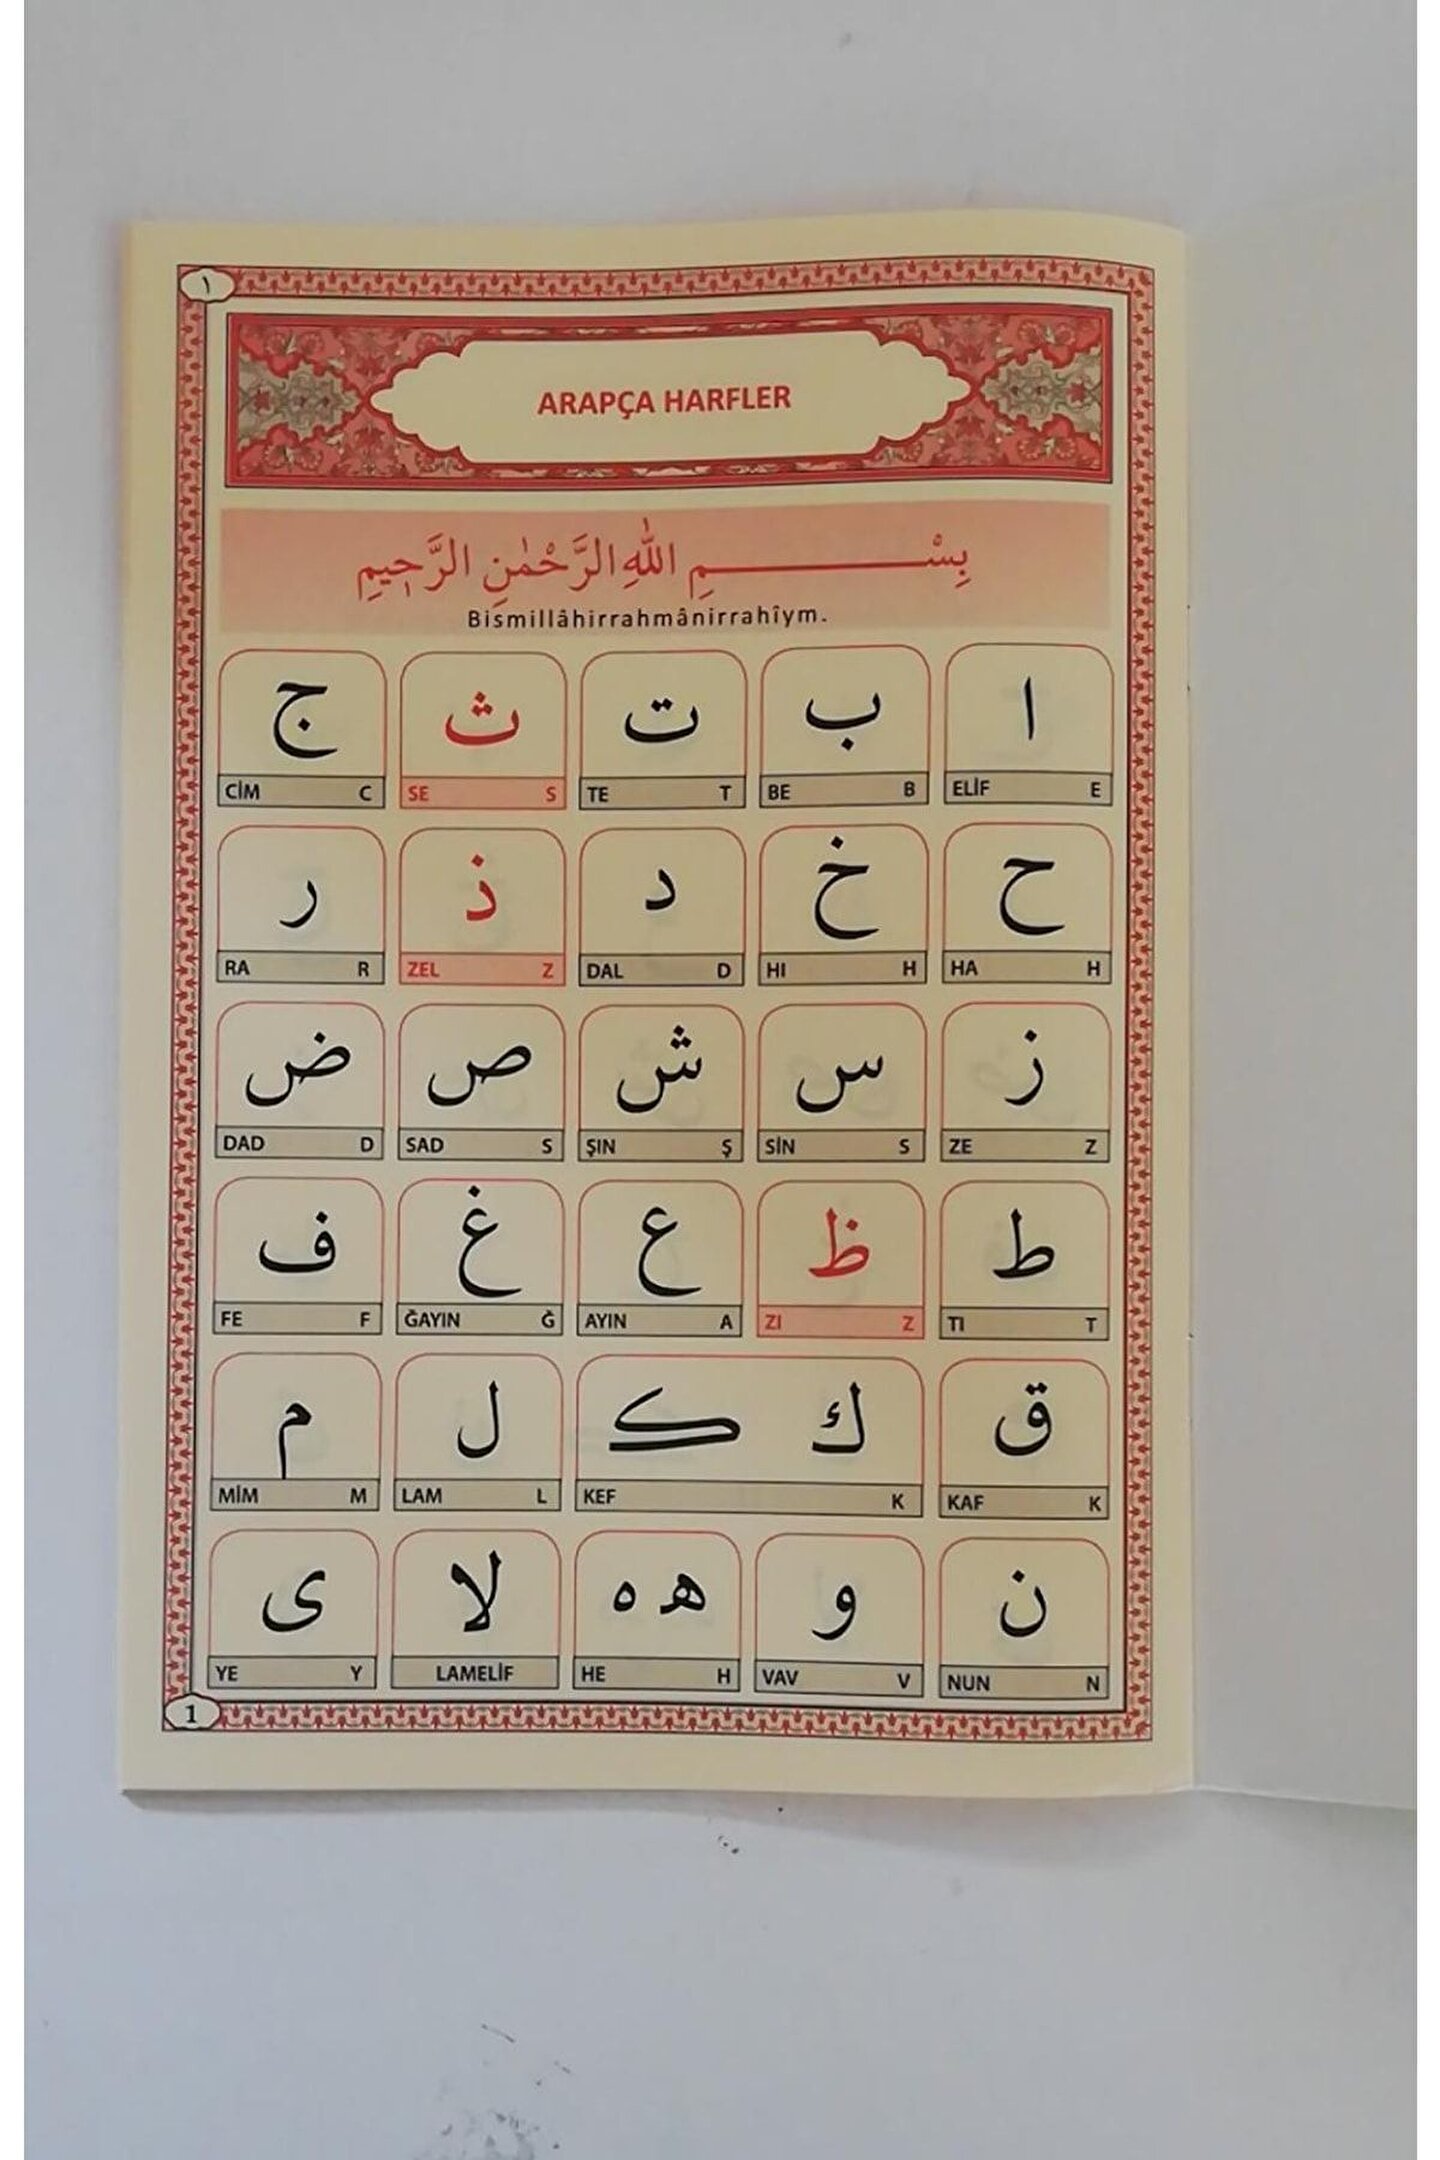 ١
ARAPÇA HARFLER
بِسْمِ اللّٰهِ الرَّحْمٰنِ الرَّحٖيمِ
Bismillâhirrahmânirrahîym.
ا ب ت ث ج
ELİF E BE B TE T SE S CİM C
ح خ د ذ ر
HA H HI H DAL D ZEL Z RA R
ز س ش ص ض
ZE Z SİN S ŞIN Ş SAD S DAD D
ط ظ ع غ ف
TI T ZI Z AYIN A ĞAYIN Ğ FE F
ق ك ﮐ ل م
KAF K KEF K LAM L MİM M
ن و ﻫ ه لا ى
NUN N VAV V HE H LAMELİF YE Y
1